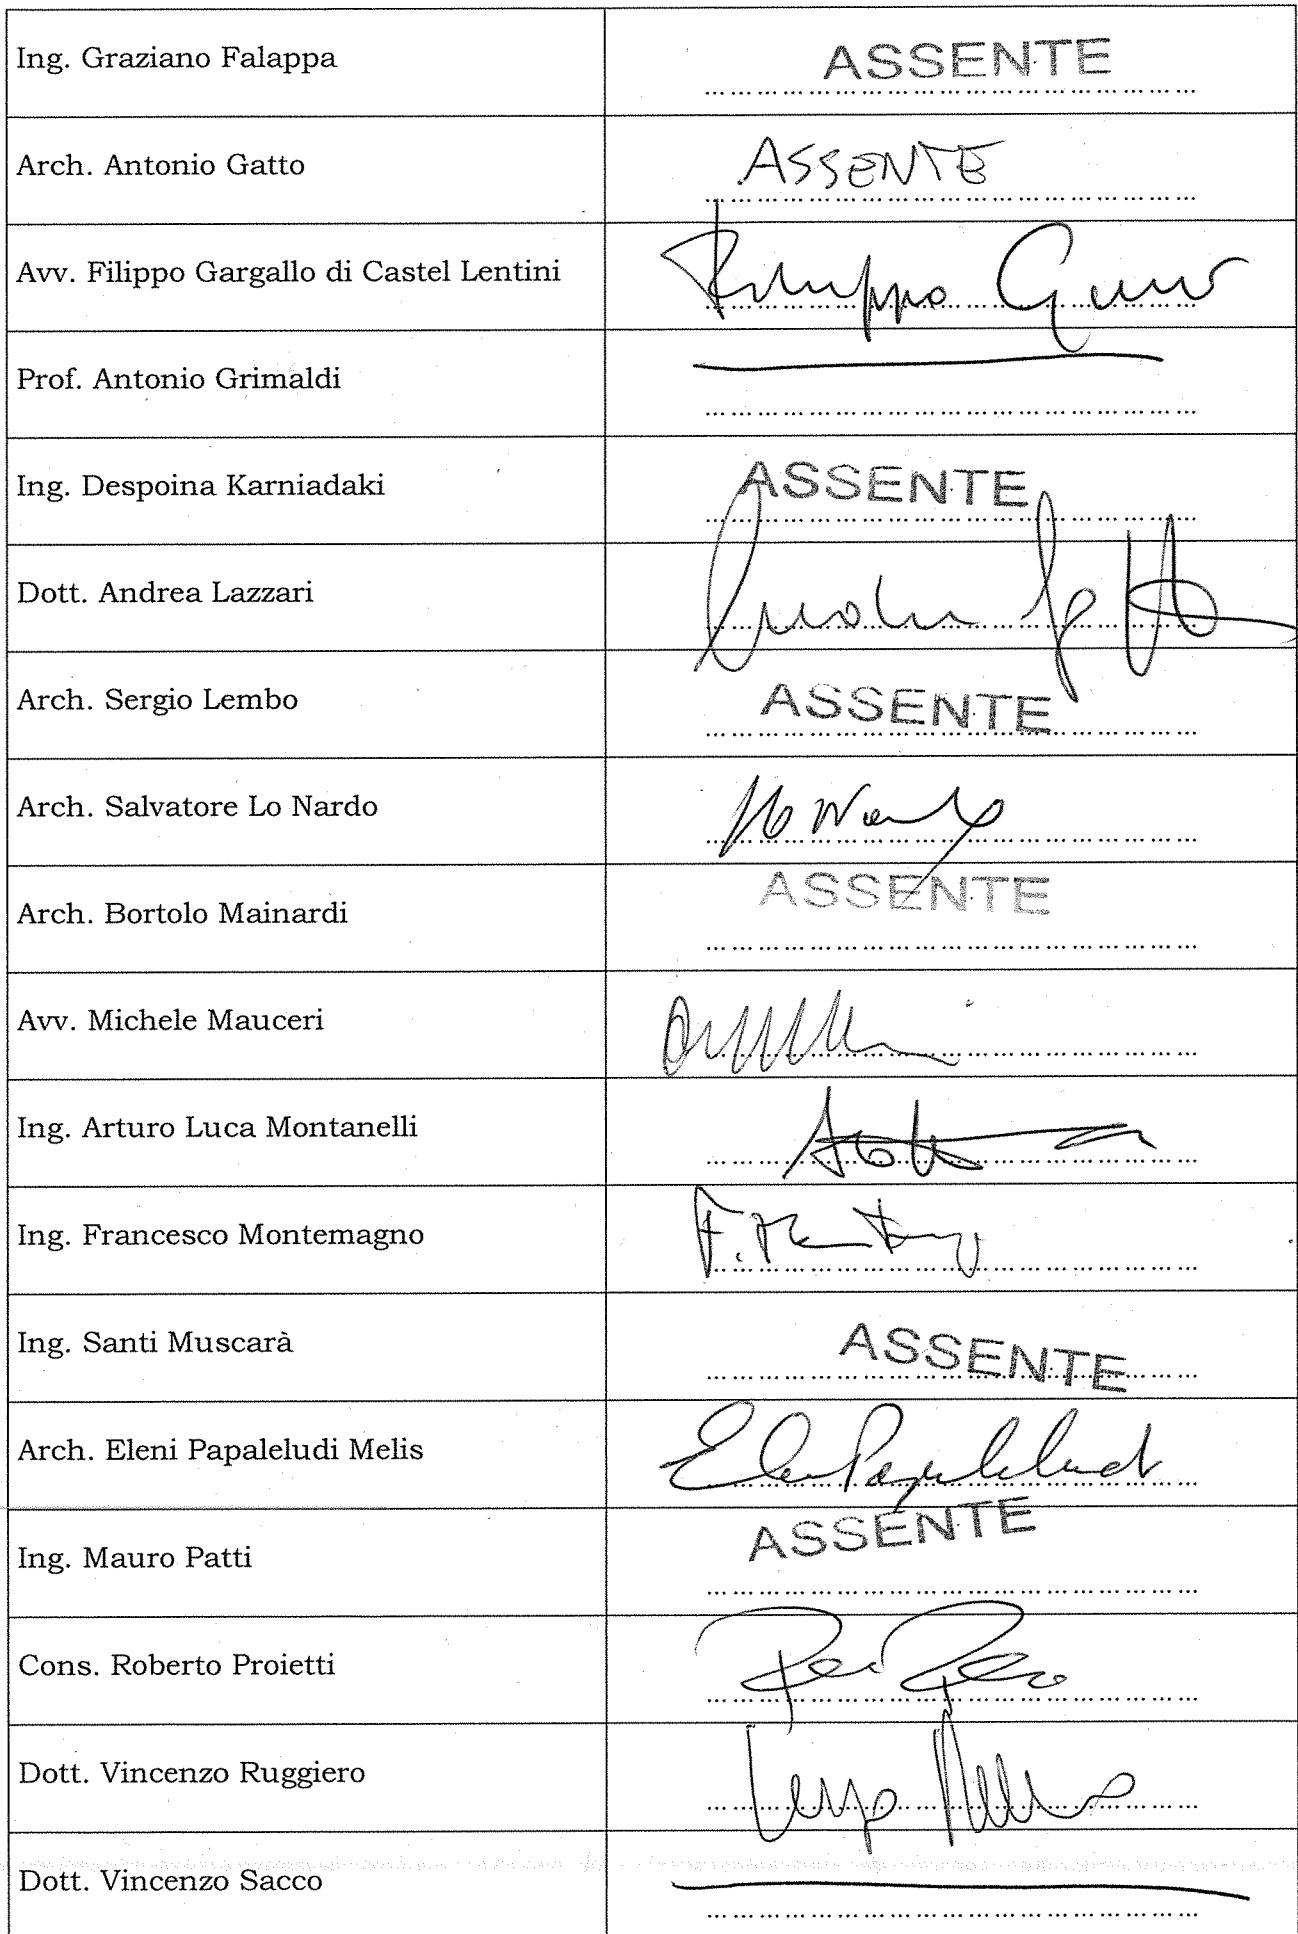 Ing. Graziano Falappa ASSENTE
Arch. Antonio Gatto ASSENTE
Avv. Filippo Gargallo di Castel Lentini Filippo
Prof. Antonio Grimaldi
Ing. Despoina Karniadaki ASSENTE
Dott. Andrea Lazzari
Arch. Sergio Lembo ASSENTE
Arch. Salvatore Lo Nardo
Arch. Bortolo Mainardi ASSENTE
Avv. Michele Mauceri
Ing. Arturo Luca Montanelli
Ing. Francesco Montemagno
Ing. Santi Muscarà ASSENTE
Arch. Eleni Papaleludi Melis
Ing. Mauro Patti ASSENTE
Cons. Roberto Proietti
Dott. Vincenzo Ruggiero
Dott. Vincenzo Sacco